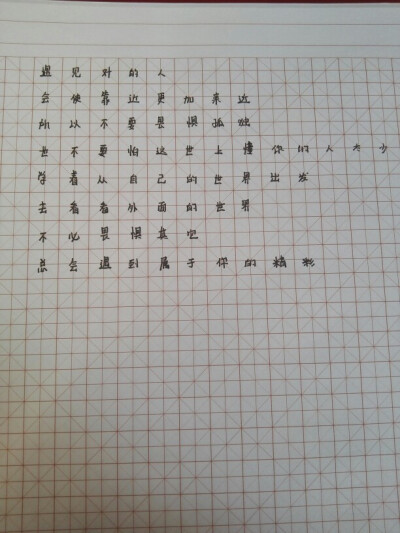 遇见对的人
会使靠近更加亲近
所以不要畏惧孤独
也不要怕这世上懂你的人太少
学着从自己的世界出发
去看看外面的世界
不必畏惧真心
总会遇到属于你的精彩